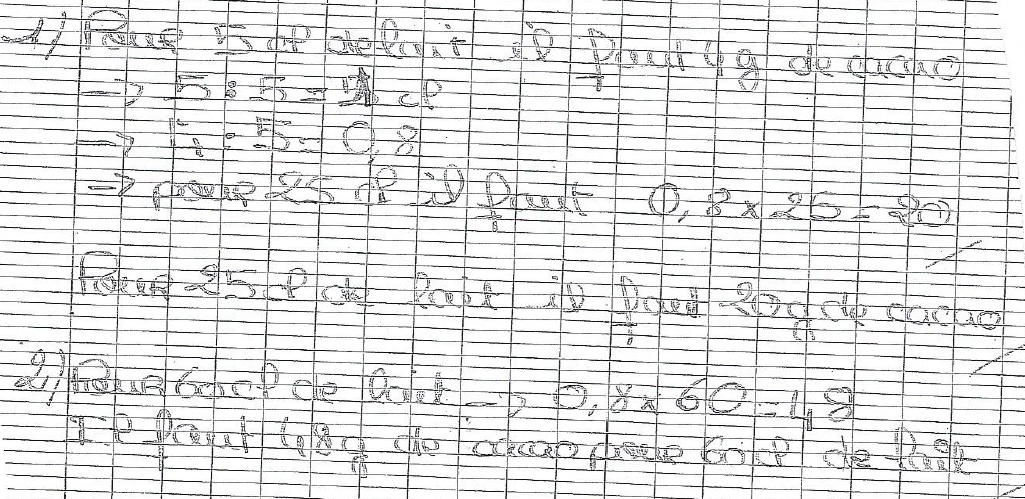 1) Pour 5 cl de lait il faut 4g de cacao
→ 5 : 5 = 1 cl
→ 4 : 5 = 0,8
→ pour 25 cl il faut 0,8 x 25 = 20
Pour 25 cl de lait il faut 20g de cacao
2) Pour 60 cl de lait → 0,8 x 60 = 48
Il faut 48g de cacao pour 60 cl de lait